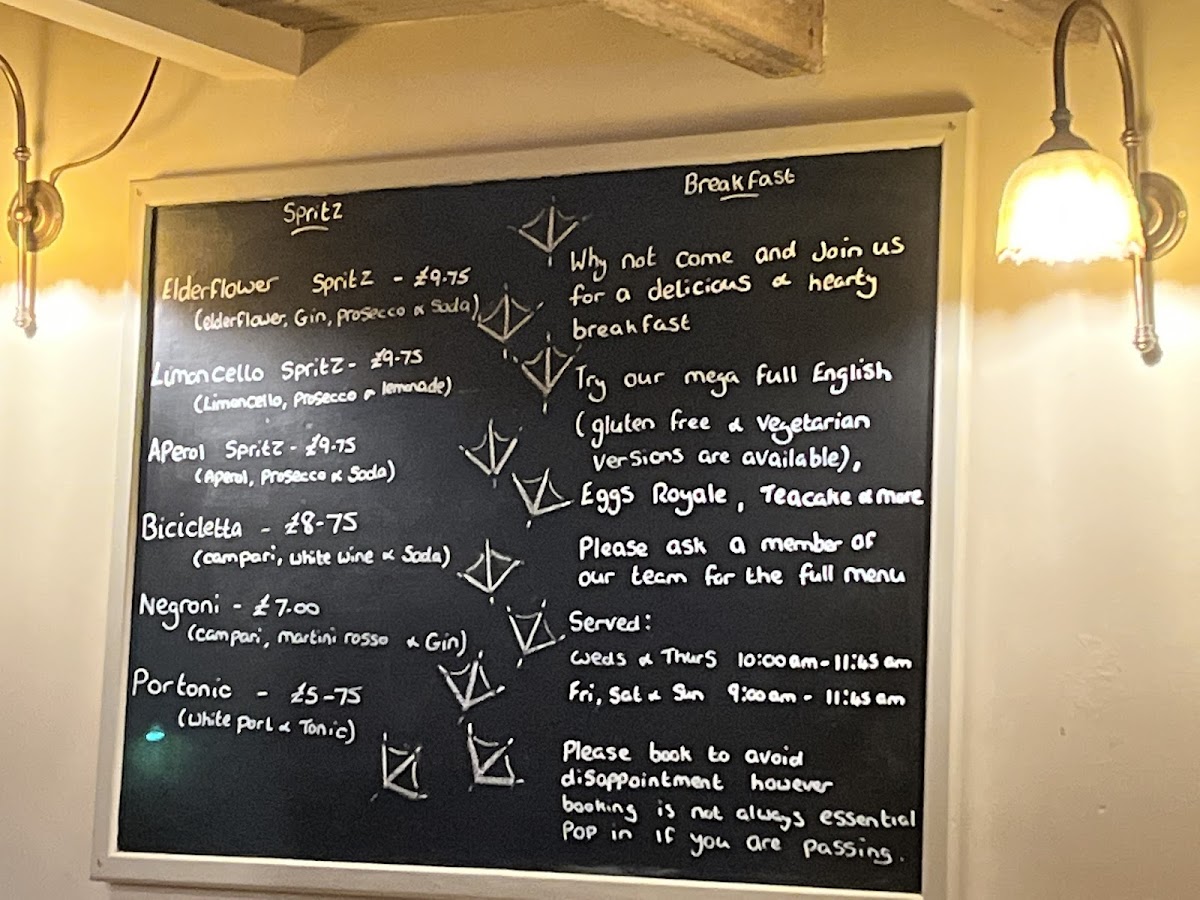 Spritz
Elderflower Spritz - £9.75
(elderflower, Gin, prosecco & Soda)
Limoncello Spritz - £9-75
(Limoncello, Prosecco & lemonade)
APerol Spritz - £9.75
(Aperol, Prosecco & Soda)
Bicicletta - £8-75
(campari, white wine & Soda)
Negroni - £7.00
(campari, martini rosso & Gin)
Portonic - £5-75
(White Port & Tonic)
Breakfast
Why not come and Join us
for a delicious & hearty
breakfast
Try our mega Full English
(gluten free & vegetarian
versions are available),
Eggs Royale, Teacake & more
Please ask a member of
our team for the full menu
Served:
Weds & Thurs 10:00am - 11:45 am
Fri, Sat & Sun 9:00am - 11:45 am
Please book to avoid
disappointment however
booking is not always essential
Pop in if you are passing.